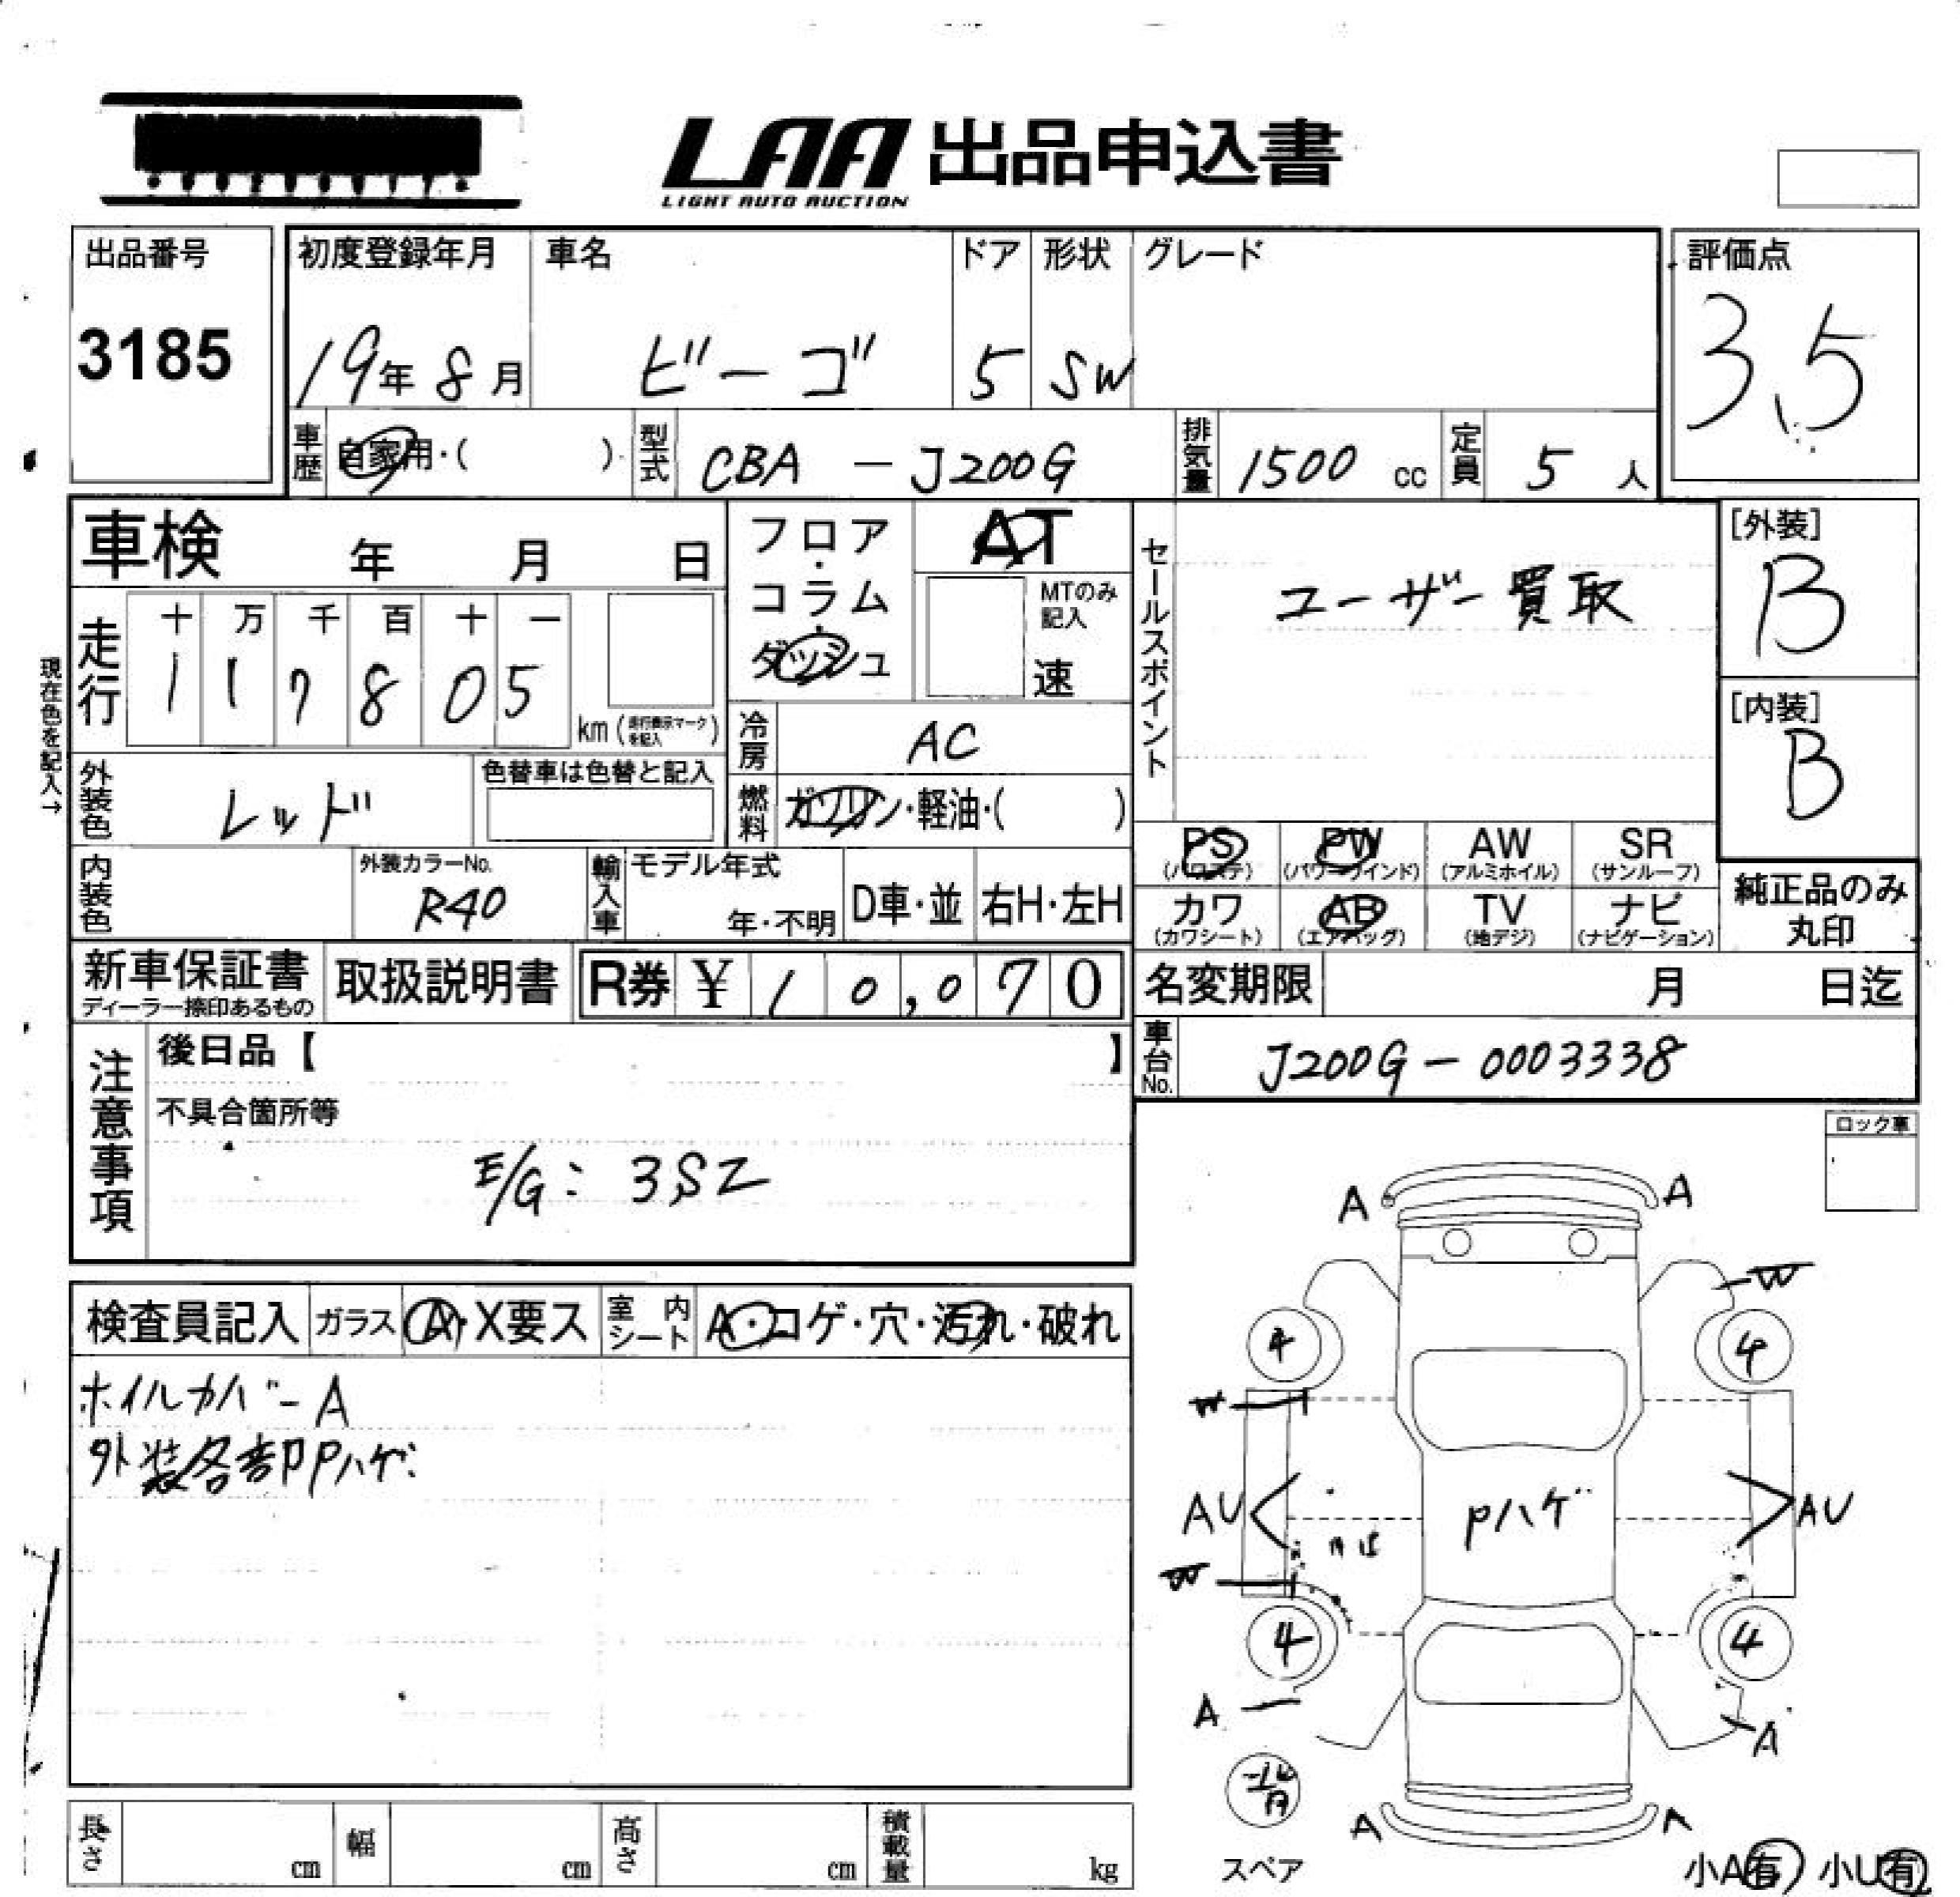 LAA 出品申込書
LIGHT AUTO AUCTION
出品番号
3185
初度登録年月 車名 ドア 形状 グレード
19年 8月 ビーゴ 5 SW
評価点
3.5
車歴 自家用・( ) 型式 CBA - J200G 排気量 1500 cc 定員 5 人
車検 年 月 日
フロア・コラム・ダッシュ
AT
MTのみ記入
速
セールスポイント
ユーザー買取
[外装]
B
[内装]
B
現在色を記入→
走行 十 万 千 百 十 一
1 1 7 8 0 5 km (走行表示マークを記入)
冷房 AC
外装色 レッド 色替車は色替と記入
燃料 ガソリン・軽油・( )
内装色 外装カラーNo. R40
輸入車 モデル年式 年・不明 D車・並 右H・左H
PS (パワステ) PW (パワーウインド) AW (アルミホイル) SR (サンルーフ)
カワ (カワシート) AB (エアバッグ) TV (地デジ) ナビ (ナビゲーション)
純正品のみ丸印
新車保証書 ディーラー捺印あるもの 取扱説明書 R券 ¥ 10,070
名変期限 月 日迄
車台No. J200G-0003338
注意事項
後日品【 】
不具合箇所等
E/G: 3SZ
ロック車
検査員記入 ガラス A・X要ス 室内シート A・コゲ・穴・汚れ・破れ
ホイルカバーA
外装各部Pハゲ
A A
W
4 4
W
AU Pハゲ AU
W
4 4
A A
A A
スペア
小A有 小U有
長さ cm 幅 cm 高さ cm 積載量 kg